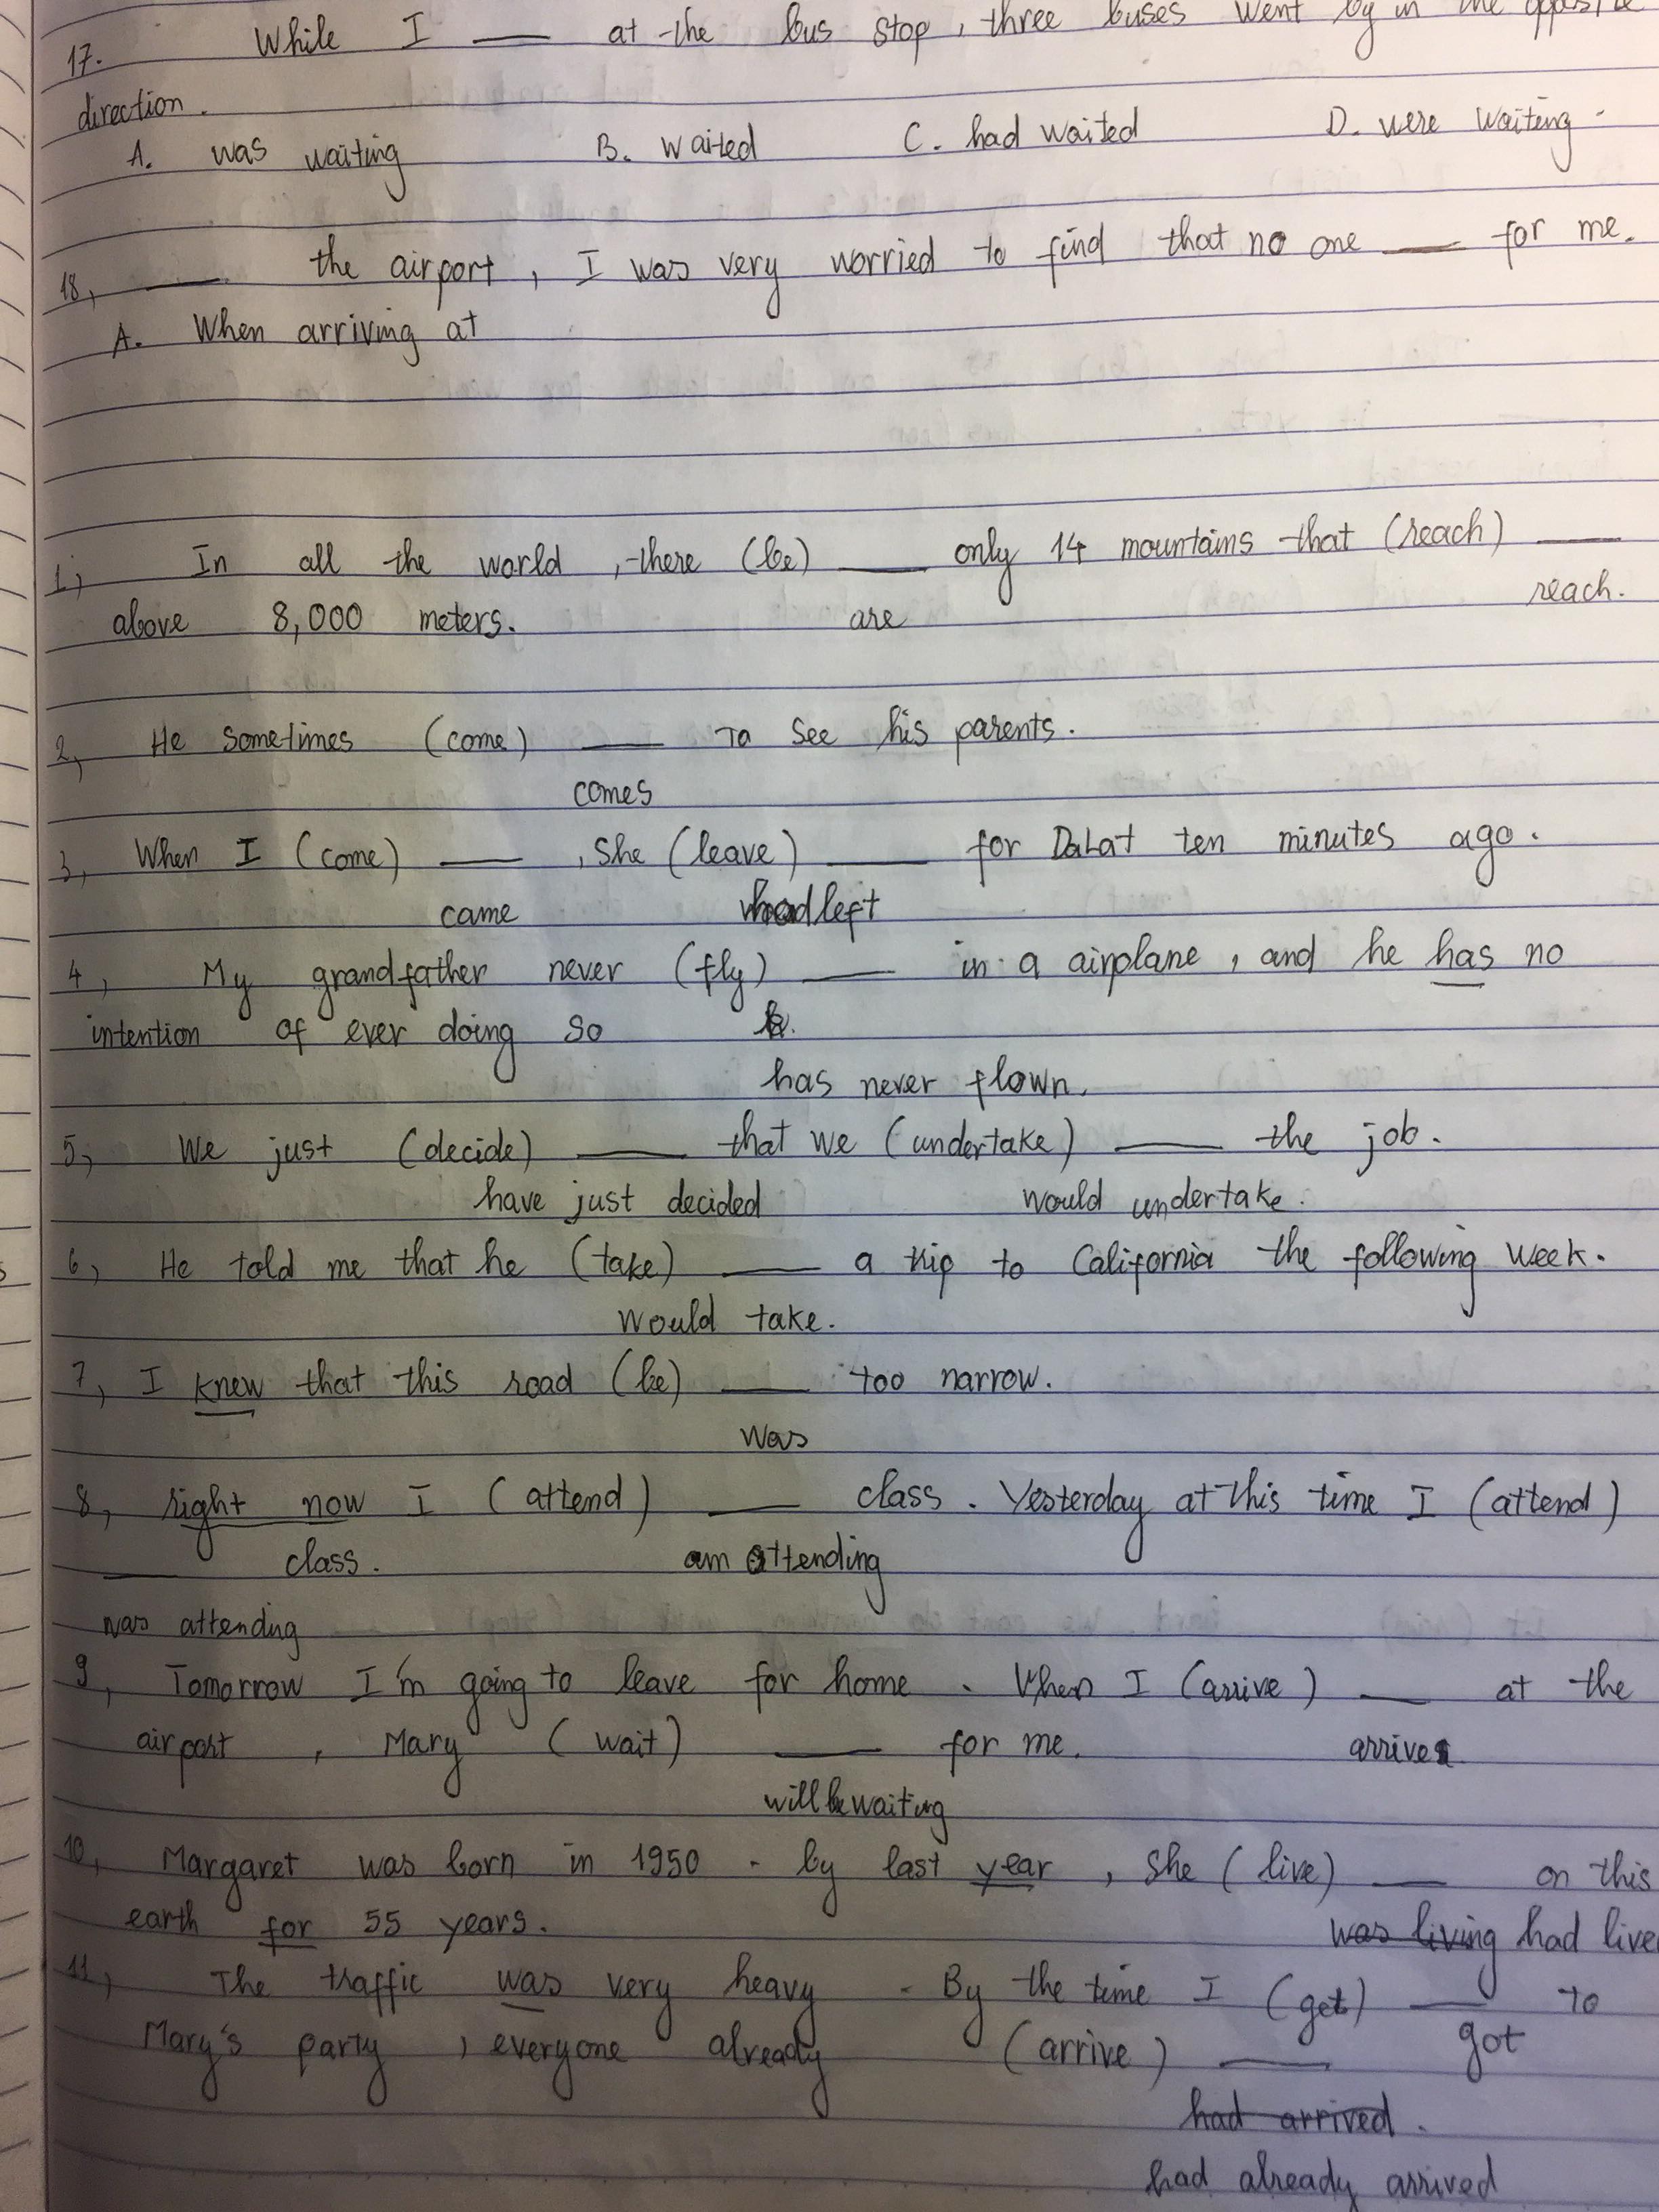 17. While I ___ at the bus stop, three buses went by in the
direction.
A. was waiting B. waited C. had waited D. were waiting.
18, ___ the airport, I was very worried to find that no one ___ for me.
A. When arriving at
1, In all the world, there (be) ___ only 14 mountains that (reach) ___
reach.
above 8,000 meters. are
2, He sometimes (come) ___ to see his parents.
comes
3, When I (come) ___, she (leave) ___ for DaLat ten minutes ago.
came had left
4, My grandfather never (fly) ___ in a airplane, and he has no
intention of ever doing so
has never flown.
5, We just (decide) ___ that we (undertake) ___ the job.
have just decided would undertake.
6, He told me that he (take) ___ a trip to California the following week.
would take.
7, I knew that this road (be) ___ too narrow.
was
8, right now I (attend) ___ class. Yesterday at this time I (attend)
___ class. am attending
was attending
9, Tomorrow I'm going to leave for home. When I (arrive) ___ at the
airport, Mary (wait) ___ for me. arrive
will be waiting
10, Margaret was born in 1950. by last year, she (live) ___ on this
earth for 55 years. was living had live
11, The traffic was very heavy. By the time I (get) ___ to
Mary's party, everyone already (arrive) ___ got
had arrived.
had already arrived